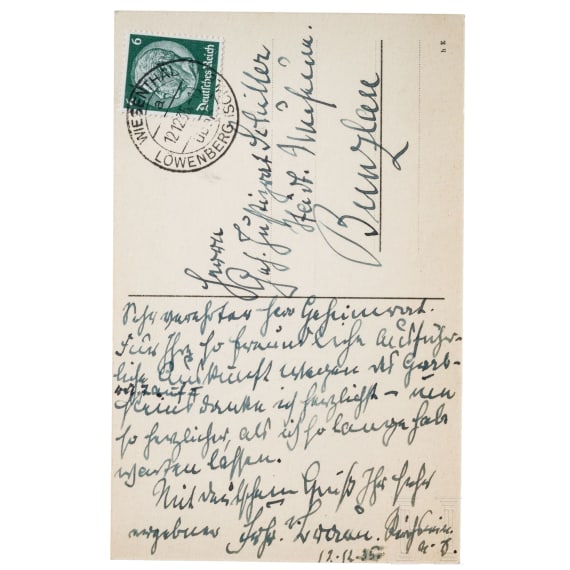 6
Deutsches Reich
WIESENTHAL
LÖWENBERG (SCH
12.12.
h E
Herrn
Geh. Justizrat Schiller
Städt. Museum.
Bunzlau
Sehr verehrter Herr Geheimrat.
Für Ihre so freundliche Ausführ-
liche Auskunft wegen des Grab-
steins danke ich herzlichst – um
so herzlicher, als ich so lange hab
warten lassen.
Mit deutschem Gruß Ihr sehr
ergebner Frhr. v.
12.12.35